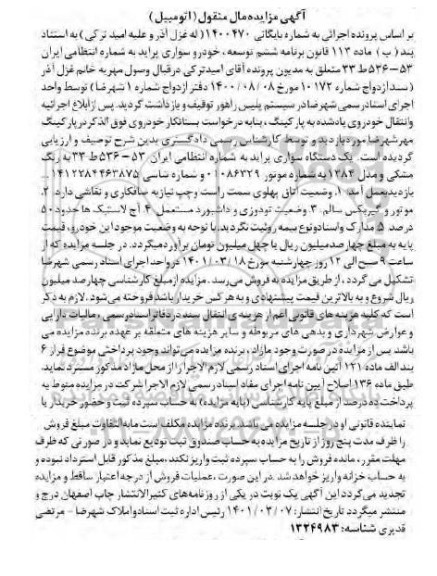 آگهی مزایده مال منقول (اتومبیل)
بر اساس پرونده اجرائی به شماره بایگانی ۱۴۰۰۴۷۰ (له غزل آذر و علیه امید ترکی) به استناد
بند (ب) ماده ۱۱۳ قانون برنامه ششم توسعه، خودرو سواری پراید به شماره انتظامی ایران
۵۳–۵۳۶ط۳۳ متعلق به مدیون پرونده آقای امید ترکی در قبال وصول مهریه خانم غزل آذر
(سند ازدواج شماره ۱۰۱۷۲ مورخ ۱۴۰۰/۰۸/۰۸ دفتر ازدواج شماره ۱ شهرضا) توسط واحد
اجرای اسناد رسمی شهرضا در سیستم پلیس راهور توقیف و بازداشت گردید. پس از ابلاغ اجرائیه
و انتقال خودروی یاد شده به پارکینگ، بنا به درخواست بستانکار خودروی فوق الذکر در پارکینگ
مهر شهرضا مورد بازدید و توسط کارشناس رسمی دادگستری بدین شرح توصیف و ارزیابی
گردیده است. یک دستگاه سواری پراید به شماره انتظامی ایران ۵۳–۵۳۶ط۳۳ به رنگ
مشکی و مدل ۱۳۸۴ به شماره موتور ۰۱۰۸۶۳۲۹ و شماره شاسی ۱۴۱۲۲۸۴۴۶۳۸۷۵
بازدید بعمل آمد. ۱. وضعیت اتاق پهلوی سمت راست وچپ نیاز به صافکاری و نقاشی دارد. ۲.
موتور و گیربکس سالم. ۳. وضعیت تودوزی و داشبورد مستعمل. ۴. آج لاستیک ها حدود ۵۰
درصد. ۵. مدارک و اسناد و نوع بیمه رویت نگردید. با توجه به وضعیت موجود این خودرو، قیمت
پایه به مبلغ چهارصد میلیون ریال یا چهل میلیون تومان برآورد میگردد. در جلسه مزایده که از
ساعت ۹ صبح الی ۱۲ روز چهارشنبه مورخ ۱۴۰۱/۰۳/۱۸ در واحد اجرای اسناد رسمی شهرضا
تشکیل می گردد، از طریق مزایده به فروش می رسد. مزایده از مبلغ کارشناسی چهارصد میلیون
ریال شروع و به بالاترین قیمت پیشنهادی و به هر کس خریدار باشد فروخته می شود. لازم به ذکر
است که کلیه هزینه های قانونی اعم از هزینه ی انتقال سند در دفاتر اسناد رسمی، مالیات، دارایی
و عوارض شهرداری و بدهی های مربوطه و سایر هزینه های متعلقه بر عهده برنده مزایده می
باشد. پس از مزایده در صورت وجود مازاد، برنده مزایده می تواند وجود پرداختی موضوع فراز ۶
بند الف ماده ۱۲۱ آئین نامه اجرای اسناد رسمی لازم الاجرا را از محل مازاد مذکور مسترد نماید.
طبق ماده ۱۳۶ اصلاح آیین نامه اجرای مفاد اسناد رسمی لازم الاجرا شرکت در مزایده منوط به
پرداخت ده درصد از مبلغ پایه کارشناسی (پایه مزایده) به حساب سپرده ثبت و حضور خریدار یا
نماینده قانونی او در جلسه مزایده می باشد. برنده مزایده مکلف است مابه التفاوت مبلغ فروش
را ظرف مدت پنج روز از تاریخ مزایده به حساب صندوق ثبت تودیع نماید و در صورتی که ظرف
مهلت مقرر، مانده فروش را به حساب سپرده ثبت واریز نکند، مبلغ مذکور قابل استرداد نبوده و
به حساب خزانه واریز خواهد شد. در این صورت، عملیات فروش از درجه اعتبار ساقط و مزایده
تجدید می گردد این آگهی یک نوبت در یکی از روزنامه های کثیرالانتشار چاپ اصفهان درج و
منتشر میگردد تاریخ انتشار: ۱۴۰۱/۰۳/۰۷ رئیس اداره ثبت اسناد و املاک شهرضا - مرتضی
قدیری شناسه: ۱۳۲۴۹۸۳